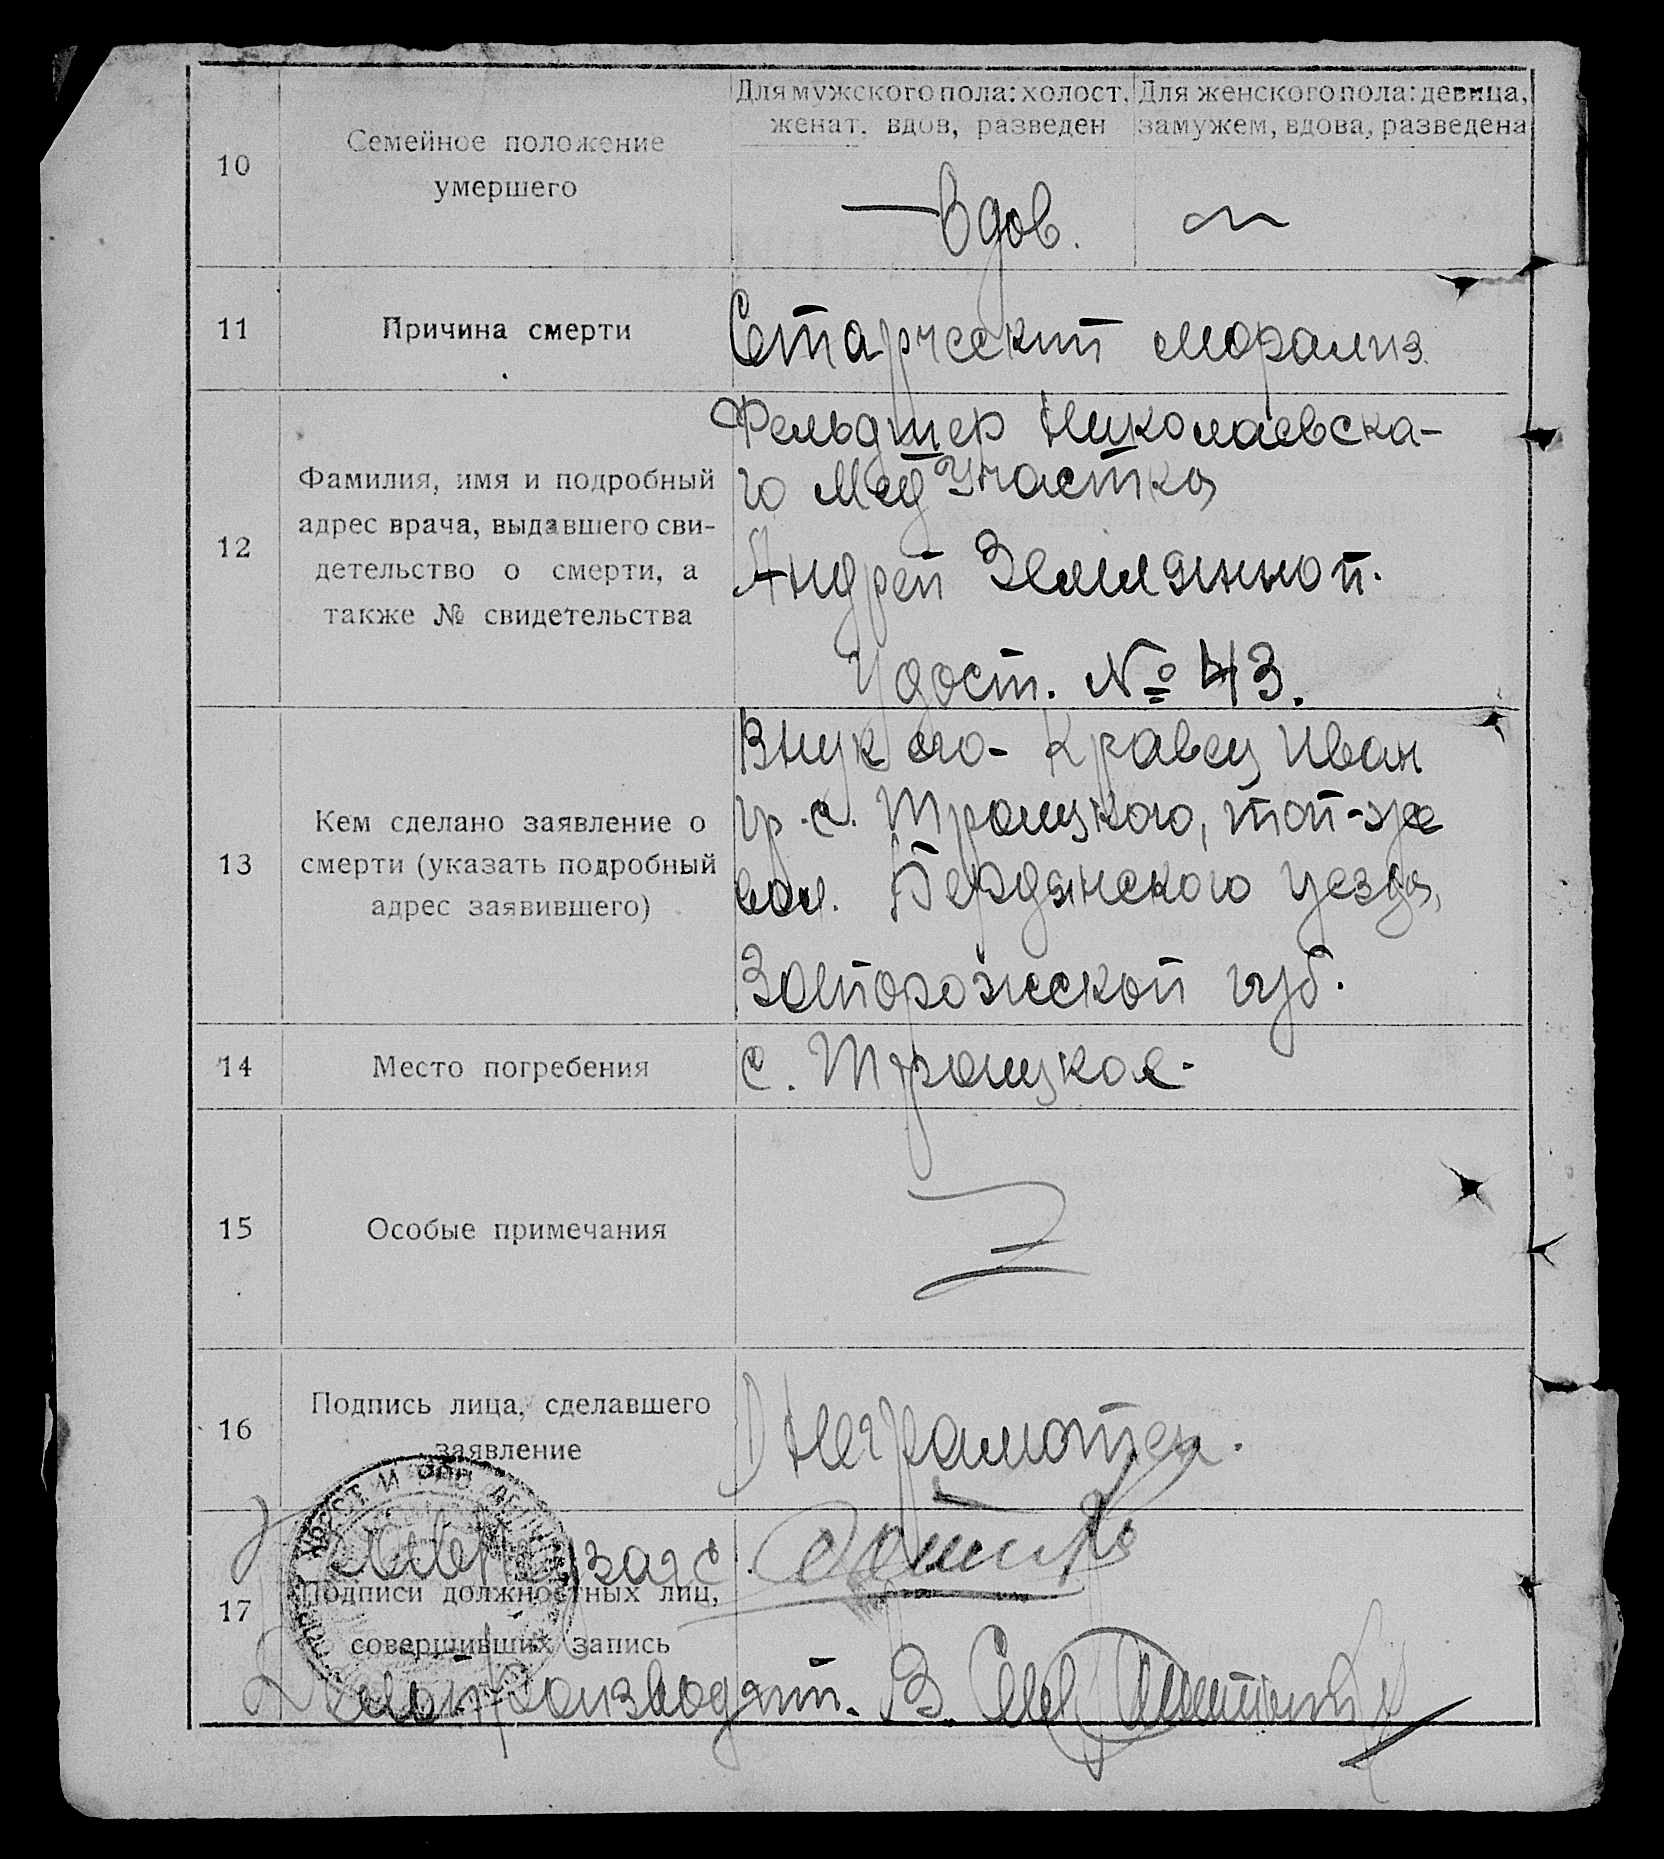 10
Семейное положение
умершего
Для мужского пола: холост,
женат, вдов, разведен
Для женского пола: девица,
замужем, вдова, разведена
Вдов.
11
Причина смерти
Старческий морализ
12
Фамилия, имя и подробный
адрес врача, выдавшего сви-
детельство о смерти, а
также № свидетельства
Фельдшер Николаевска-
го Мед Участка
Андрей Земляной.
Удост. № 43.
13
Кем сделано заявление о
смерти (указать подробный
адрес заявившего)
Внук его - Кравец Иван
гр. с. Троицкого, той-же
вол. Бердянского уезда,
Запорожской губ.
14
Место погребения
с. Троицкое.
15
Особые примечания
16
Подпись лица, сделавшего
заявление
Неграмотен.
загс.
17
Подписи должностных лиц,
совершивших запись
Делопроизводит. В.